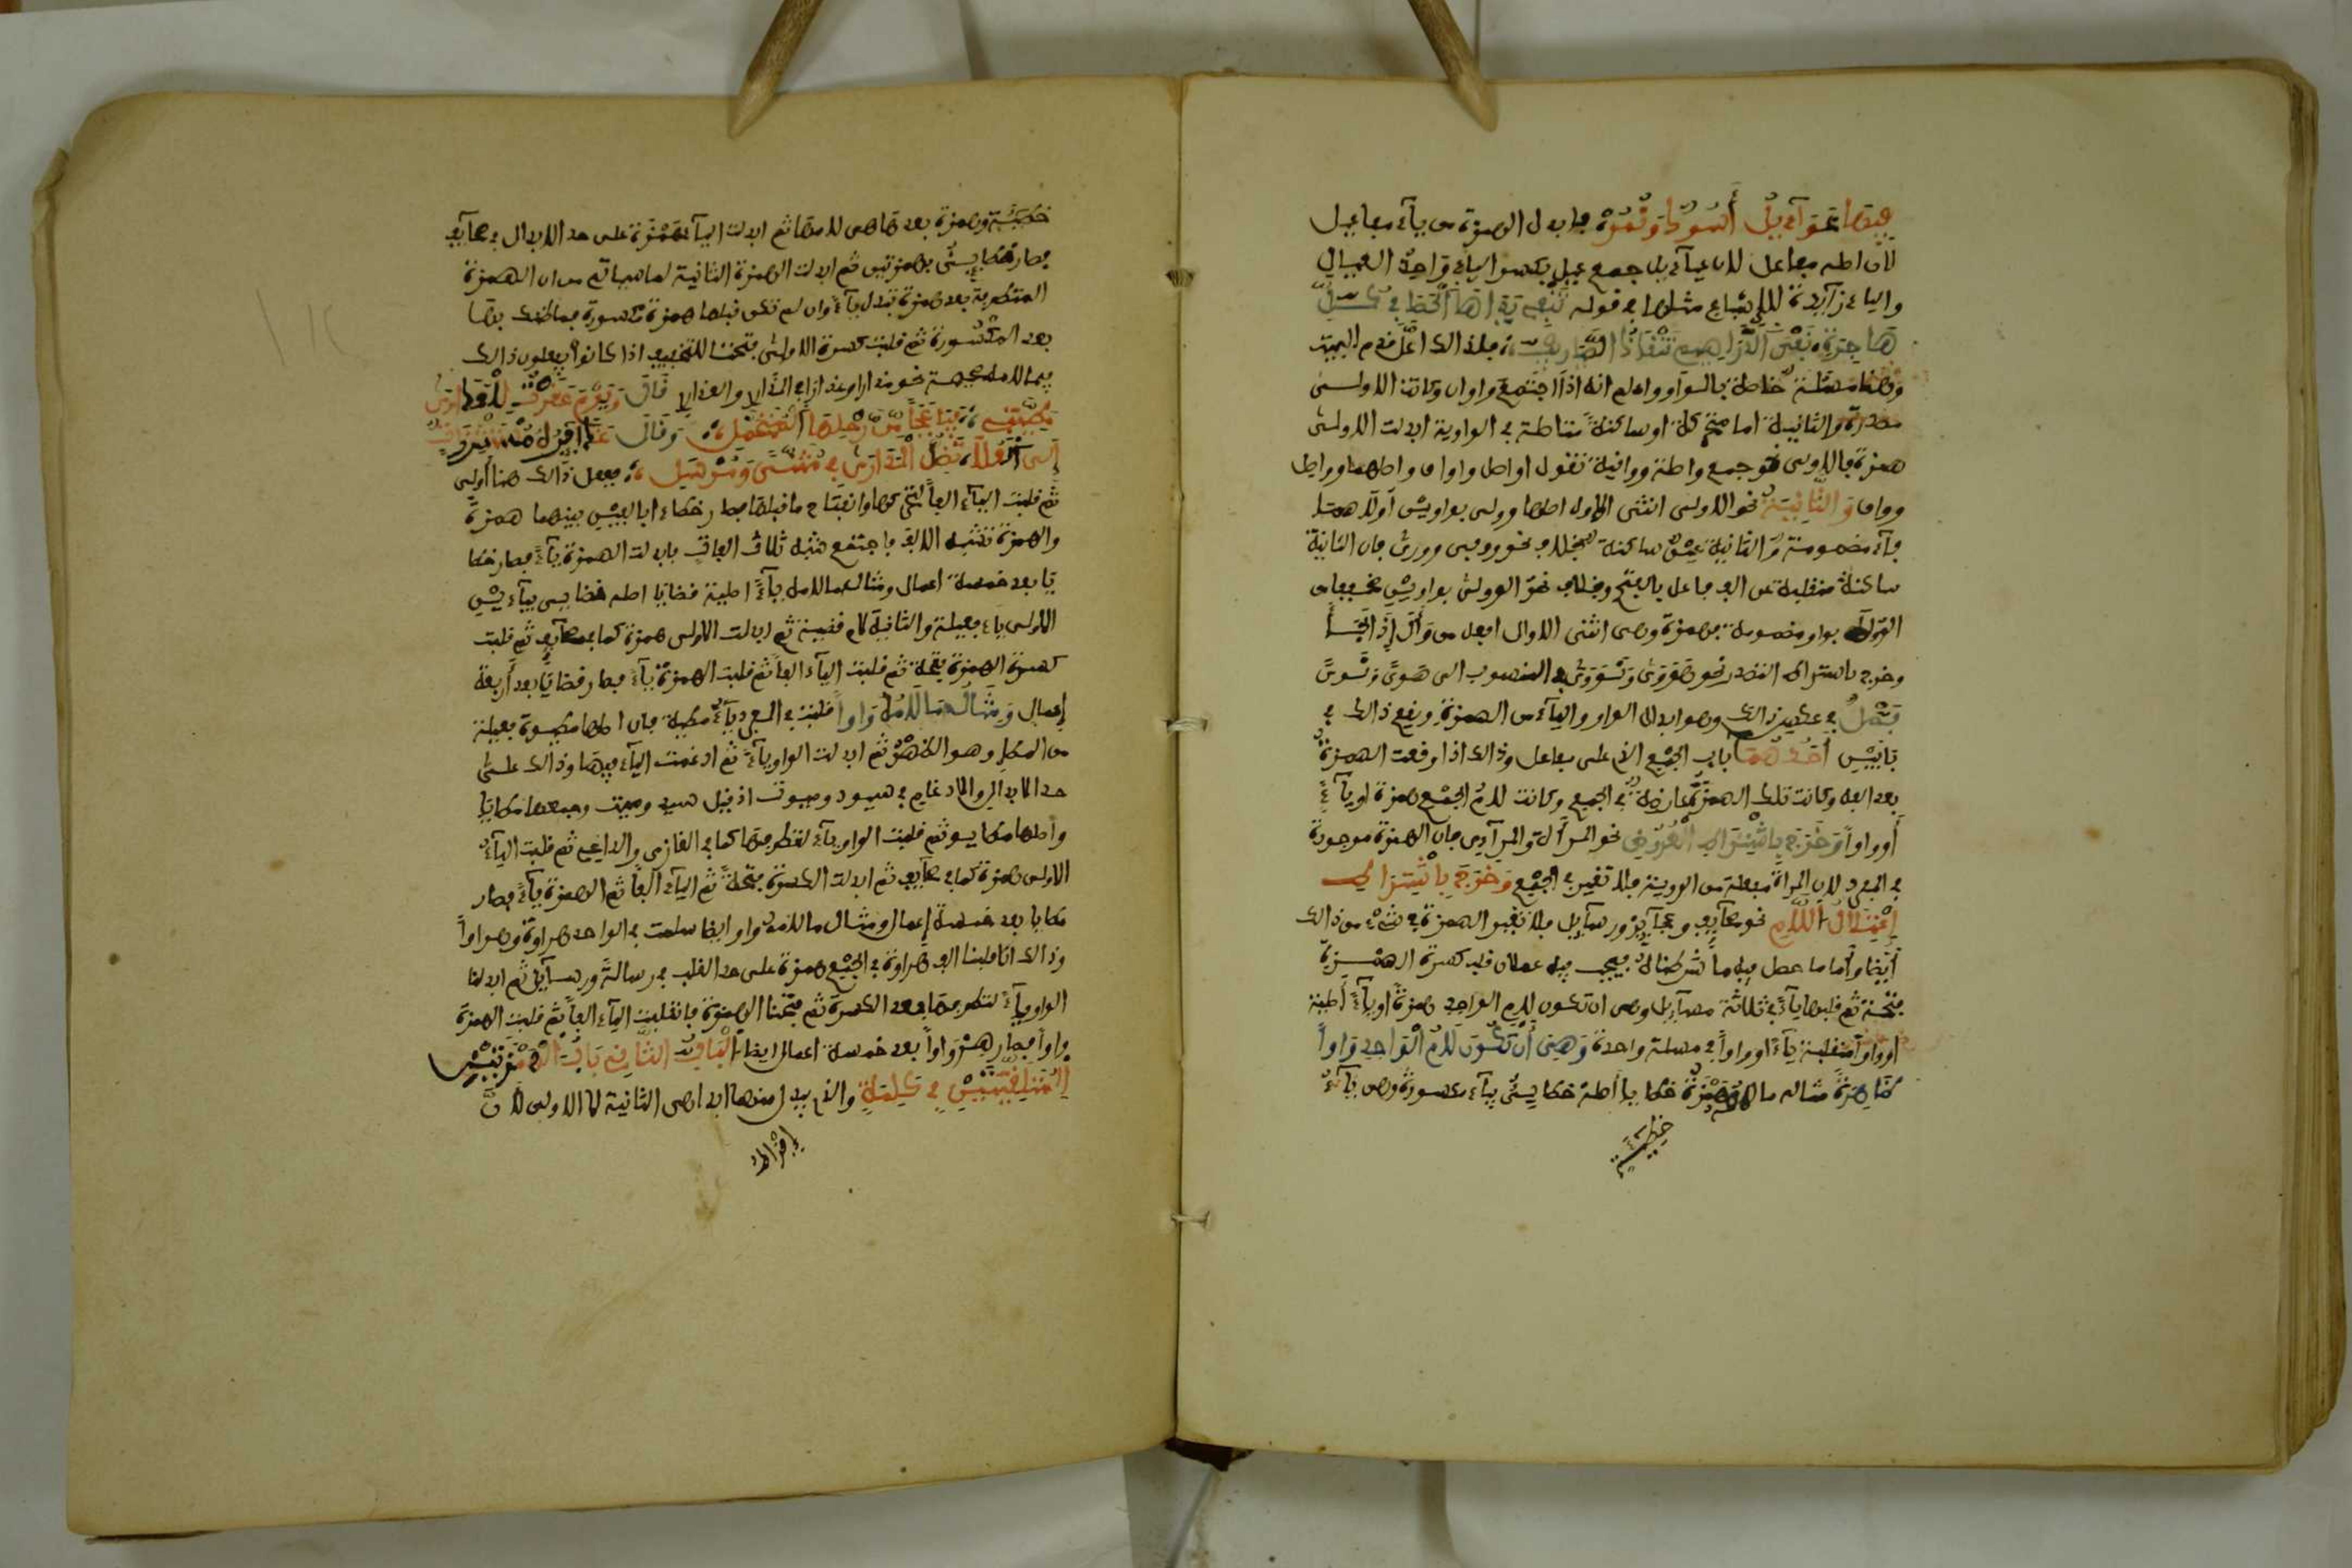 فيها عَيَآءيلُ أُسُودٌ وَنُمُرْ فابدل الهمزة من يآء مفاعيل
لان اصله مفاعل لان عيآءيل جمع عيل بكسر اليآء واحد العيال
واليآء زآيدة للاشباع مثلها في قوله تنفي يداها الحصا في كل
هَاجِرَةٍ، نَفْيَ الدَّرَاهِيمِ تَنْقَادُ الصَّيَارِيفِ، فلذالك اعل
وهنا مسئلة خاصة بالواو واعلم انه اذا اجتمع واوان وكانت الاولى
مصدرة والثانية اما متحركة او ساكنة متاصلة في الواوية ابدلت الاولى
همزة فالاولى نحو جمع واصلة وواقية تقول اواصل واواق واصلهما وواصل
وواق وَالثَّانِيَة نحو الاولى انثى الاول اصلها وولى بواوين اولاهما
فآء مضمومة والثانية عين ساكنة بخلاف نحو ووفى وورى فان الثانية
ساكنة منقلبة عن الف فاعل بالفتح وبخلاف نحو الوولى بواوين مخففا من
الوءلى بواو مضمومة فهمزة وهى انثى الاوال افعل من وأل إذا لجأ
وخرج باشتراط التصدر نحو هَوَوِى وَنَوَوِى في المنسوب الى هَوًى وَنَوًى
فَصْلٌ في عكس ذالك وهو ابدال الواو واليآء من الهمزة ويقع ذالك في
بَابَيْنِ أَحَدُهُمَا باب الجمع الذي على مفاعل وذالك اذا وقعت الهمزة
بعد الفه وكانت تلك الهمزة عارضة في الجمع وكانت لام الجمع همزة او يآءً
أو واواً وَخَرَجَ بِاشْتِرَاطِ الْعُرُوضِ نحو المرآة والمرآءى فان الهمزة موجودة
في المفرد لان المرآة مفعلة من الروية فلا تغير في الجمع وَخَرَجَ بِاشْتِرَاطِ
إعْتِلَالِ اللَّامِ نحو صحآيف وعجآيز ورسآيل فلا تغير الهمزة في شىء من ذالك
أيضا وأما ما حصل فيه ما شرطناه فيجب فيه عملان قلب كسرة الهمزة
فتحة ثم قلبها يآءً في ثلاثة مسآيل وهى ان تكون لام الواحد همزةً او يآءً أصلية
او واواً منقلبة يآءً او واواً في مسئلة واحدة وَهِيَ أَنْ تَكُونَ لَامُ الْوَاحِدِ وَاواً
ظَاهِرَةً مثال ما لامه همزة خطايا أصله خطايئُ بيآء مكسورة وهى يآءُ
خطيئة
خطيئة وهمزة بعدها هى لامها ثم ابدلت اليآء همزة على حد الابدال في صحآيف
فصار خطايئُ بهمزتين ثم ابدلت الهمزة الثانية لما سياتي من ان الهمزة
المتطرفة بعد همزة تبدل يآءً وان لم تكن قبلها همزة مكسورة فما ظنك بها
بعد المكسورة ثم قلبت كسرة الاولى فتحة للتخفيف اذا كانوا يفعلون ذالك
فيما لامه صحيحة نحو مدارا وعذارا في المدارى والعذارى قَالَ وَيَوْمَ عَقَرْتُ لِلْعَذَارَى
مَطِيَّتِي، فَيَا عَجَباً مِن رَّحْلِهَا الْمُتَحَمَّلِ، وَقَالَ غَدَآئِرُهُ مُسْتَشْزِرَاتٌ
إِلَى الْعُلَا، تَضِلُّ الْمَدَارَى فِي مُثَنَّى وَمُرْسَلِ، ففعل ذالك هنا أولى
ثم قلبت اليآء الفاً لتحركها وانفتاح ما قبلها فصار خطاءا بالفين بينهما همزة
والهمزة تشبه الالف فاجتمع شبه ثلاث الفات فابدلت الهمزة يآءً فصار خطا
يا بعد خمسة اعمال ومثال ما لامه يآءً اصلية قضايا اصله قضايي بيآءين
الاولى يآء فعيلة والثانية لام قضية ثم ابدلت الاولى همزة كما في صحآيف ثم قلبت
كسرة الهمزة فتحة ثم قلبت اليآء الفا ثم قلبت الهمزة يآءً فصار قضايا بعد أربعة
إعمال وَمِثَالُ مَا لَامُهُ وَاواً قلبت في المفرد يآءً مطية فان اصلها مطيوة فعيلة
من المطا وهو الظهر ثم ابدلت الواو يآءً ثم ادغمت اليآء فيها وذالك على
حد الابدال والادغام في سيود وميوت اذ قيل سيد وميت وجمعها مطايا
وأصلها مطايو ثم قلبت الواو يآء لتطرفها كما في الغازى والداعى ثم قلبت اليآء
الاولى همزة كما في صحآيف ثم ابدلت الكسرة فتحة ثم اليآء الفا ثم الهمزة يآءً فصار
مطايا بعد خمسة إعمال ومثال ما لامه واو ايضا سلمت في الواحد هراوة وهراواً
وذالك انا قلبنا الف هراوة في الجمع همزة على حد القلب في رسالة ورسآيل ثم ابدلنا
الواو يآءً لتطرفها بعد الكسرة ثم فتحنا الهمزة فانقلبت اليآء الفا ثم قلبت الهمزة
واواً فصار هراواً بعد خمسة اعمال ايضا الْبَابُ الثَّانِي بَابُ الْهَمْزَتَيْنِ
الْمُلْتَقِيَتَيْنِ فِي كَلِمَةٍ والذي يبدل منهما ابدا هى الثانية لا الاولى لأن
إفراط